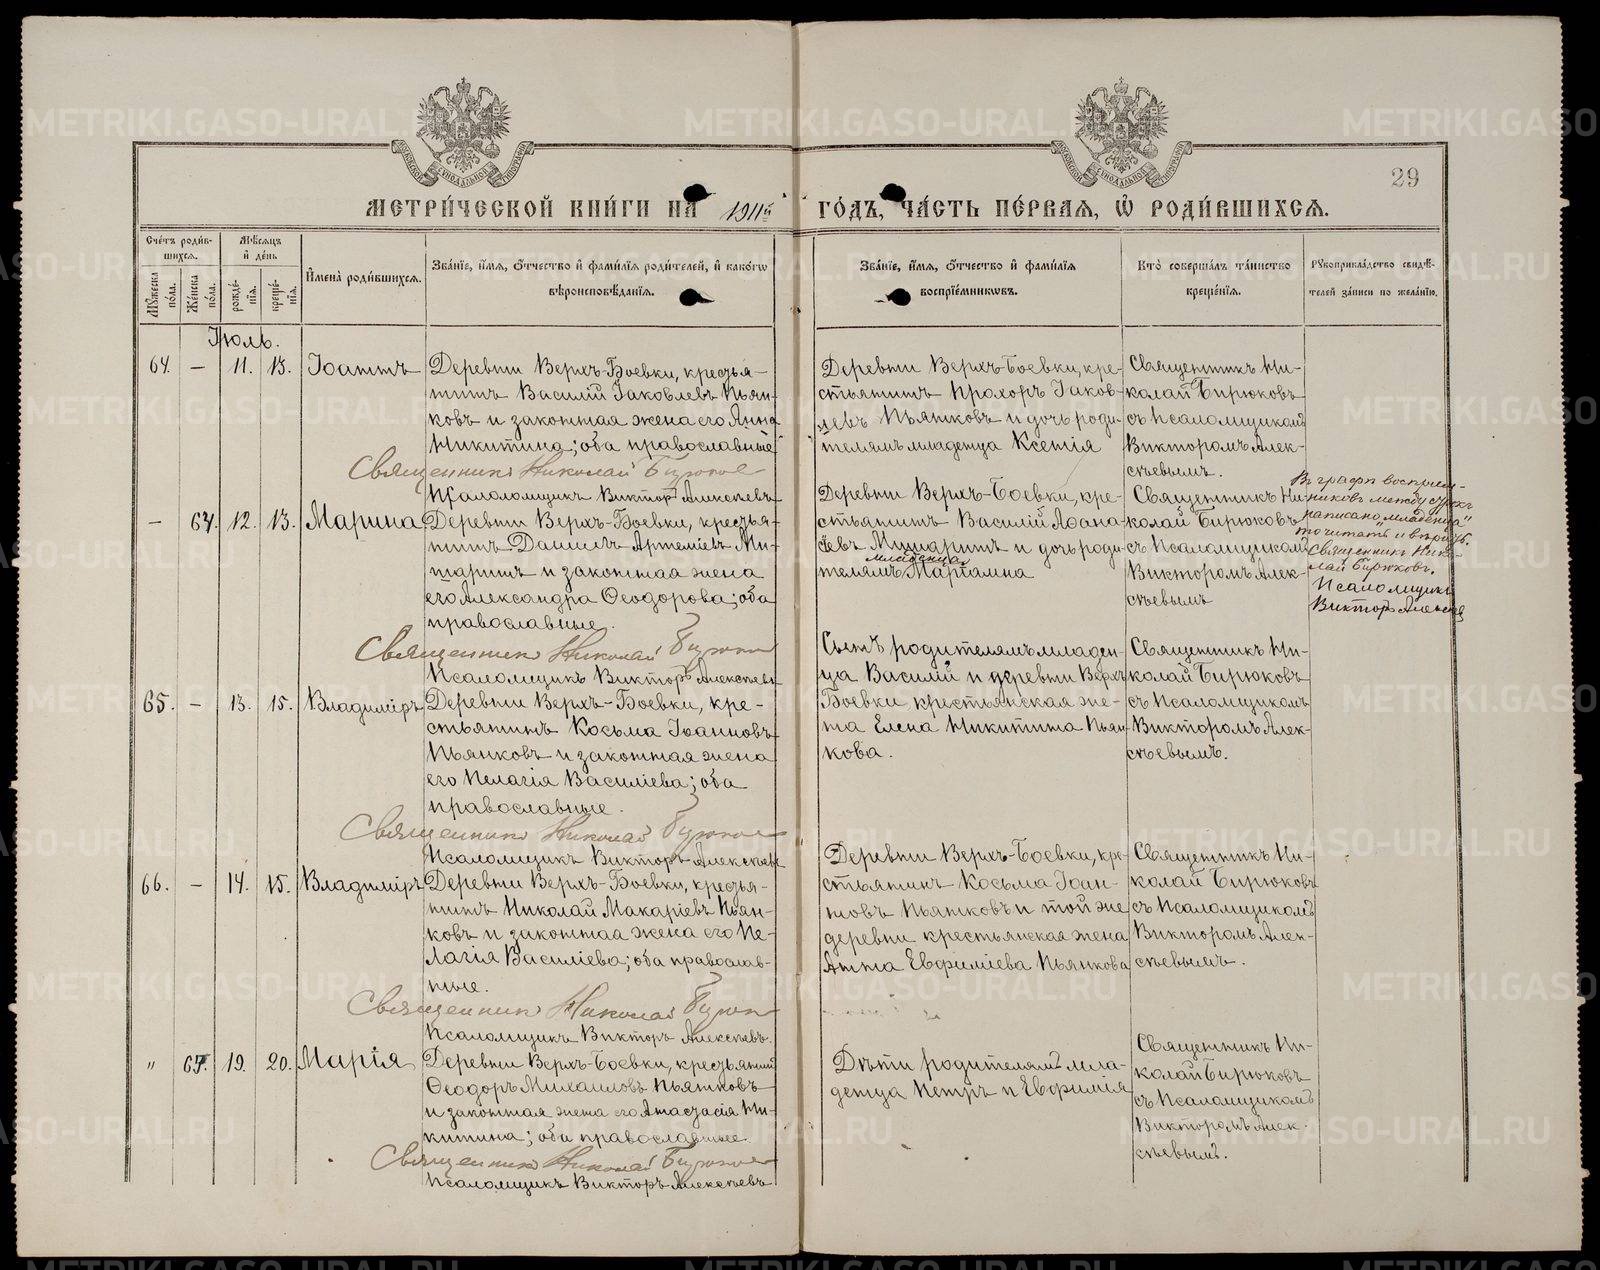 29
МЕТРИ́ЧЕСКОЙ КНИ́ГИ НА 1911й ГО́ДЪ, ЧА́СТЬ ПЕ́РВАЯ, Ѡ РОДИ́ВШИХСЯ.
Сче́тъ роди́в-
шихся.
Му́жеска по́ла.
Же́нска по́ла.
Мѣ́сяцъ
и де́нь
рожде́-
нія.
креще́-
нія.
Имена̀ роди́вшихся.
Зва́ніе, имя, о́тчество и фами́лія роди́телей, и како́гѡ
вѣроисповѣ́данія.
Зва́ніе, имя, о́тчество и фами́лія
воспріе́мникѡвъ.
Кто̀ соверша́лъ та́инство
креще́нія.
Рꙋкоприкла́дство свидѣ́-
телей за́писи по жела́нію.
Іюль.
64. — 11. 13. Іоаннъ
Деревни Верхъ-Боевки, кресть я-
нинъ Василій Іаковлевъ Пьян-
ковъ и законная жена его Анна
Никитина; оба православные
Священникъ Николай Бирюков
Псаломщикъ Викторъ Алексѣевъ
Деревни Верхъ-Боевки, кре-
стьянинъ Прохоръ Іаков-
левъ Пьянковъ и дочь роди-
телямъ младенца Ксенія
Священникъ Ни-
колай Бирюковъ
съ Псаломщикомъ
Викторомъ Алек-
сѣевымъ.
— 64. 12. 13. Марина
Деревни Верхъ-Боевки, крестья-
нинъ Даніилъ Артеміевъ Ми-
шаринъ и законная жена
его Александра Ѳеодорова; оба
православные.
Священникъ Николай Бирюков
Псаломщикъ Викторъ Алексѣевъ
Деревни Верхъ-Боевки, кре-
стьянинъ Василій Аѳана-
сіевъ Мишаринъ и дочь роди-
младенца
телямъ Маріамна
Священникъ Ни-
колай Бирюковъ
съ Псаломщикомъ
Викторомъ Алек-
сѣевымъ
Въ графѣ воспріем-
никовъ между строкъ
написано „младенца“
то читать и вѣрить.
Священникъ Нико-
лай Бирюковъ.
Псаломщикъ
Викторъ Алексѣев
65. — 13. 15. Владиміръ
Деревни Верхъ-Боевки, кре-
стьянинъ Косьма Іоанновъ
Пьянковъ и законная жена
его Пелагія Василіева; оба
православные.
Священникъ Николай Бирюков
Псаломщикъ Викторъ Алексѣевъ
Сынъ родителямъ младен-
ца Василій и деревни Верхъ
Боевки крестьянская же-
на Елена Никитина Пьян-
кова.
Священникъ Ни-
колай Бирюковъ
съ Псаломщикомъ
Викторомъ Алек-
сѣевымъ.
66. — 14. 15. Владиміръ
Деревни Верхъ-Боевки, крестья-
нинъ Николай Макаріевъ Пьян-
ковъ и законная жена его Пе-
лагія Василіева; оба православ-
ные.
Священникъ Николай Бирюков
Псаломщикъ Викторъ Алексѣевъ.
Деревни Верхъ-Боевки, кре-
стьянинъ Косьма Іоан-
новъ Пьянковъ и той же
деревни крестьянская жена
Анна Евфиміева Пьянкова
Священникъ Ни-
колай Бирюковъ
съ Псаломщикомъ
Викторомъ Алек-
сѣевымъ.
" 65. 19. 20. Марія
Деревни Верхъ-Боевки, крестьянинъ
Ѳеодоръ Михаиловъ Пьянковъ
и законная жена его Анастасія Ни-
китина; оба православные.
Священникъ Николай Бирюков
Псаломщикъ Викторъ Алексѣевъ
Дѣти родителямъ мла-
денца Петръ и Евфимія
Священникъ Ни-
колай Бирюковъ
съ Псаломщикомъ
Викторомъ Алек-
сѣевымъ.
METRIKI.GASO-URAL.RU